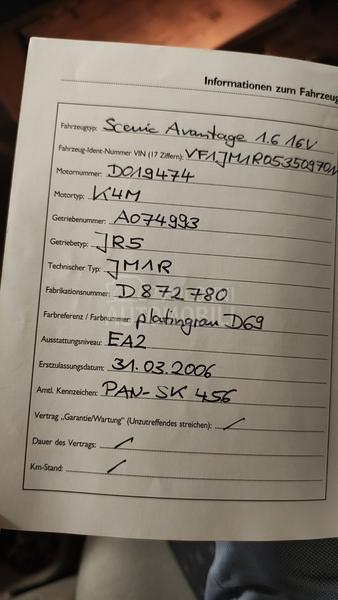 Informationen zum Fahrzeug
Fahrzeugtyp: Scenic Avantage 1.6 16V
Fahrzeug-Ident-Nummer VIN (17 Ziffern): VF1JM1R0535097
Motornummer: D019474
Motortyp: K4M
Getriebenummer: A074993
Getriebetyp: JR5
Technischer Typ: JM1R
Fabrikationsnummer: D872780
Farbreferenz / Farbnummer: platingrau D69
Ausstattungsniveau: EA2
Erstzulassungsdatum: 31.03.2006
Amtl. Kennzeichen: PAN-SK 456
Vertrag „Garantie/Wartung" (Unzutreffendes streichen): /
Dauer des Vertrags: /
Km-Stand: /